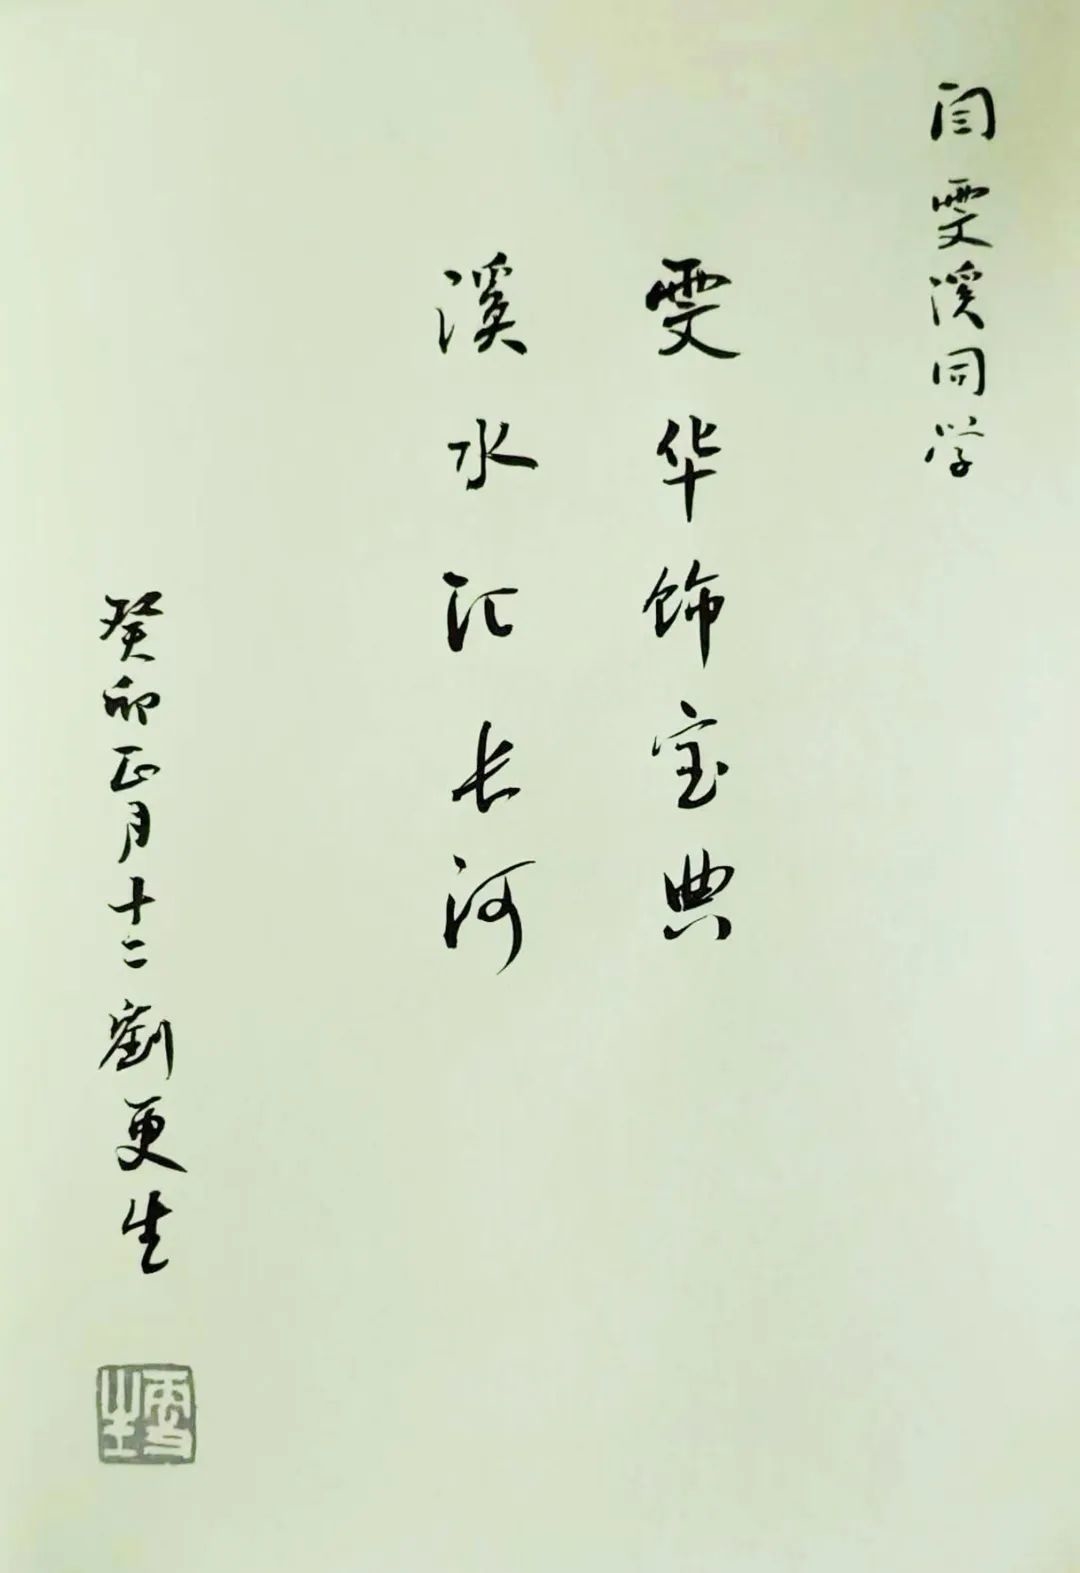 闫雯溪同学
雯华饰宝典
溪水汇长河
癸卯正月十二劉更生
更生